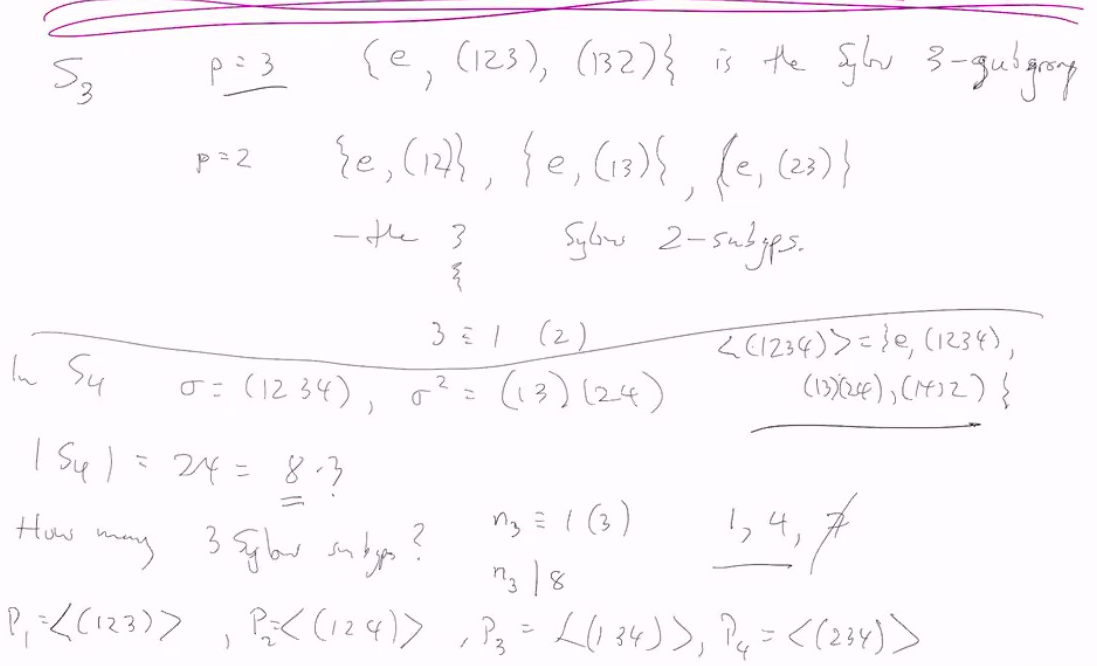 S₃ p = 3 {e, (123), (132)} is the Sylow 3-subgroup
p = 2 {e, (12)}, {e, (13)}, {e, (23)}
– the 3 Sylow 2-subgps.
3 ≡ 1 (2)
<(1234)> = {e, (1234),
(13)(24), (1432)}
In S₄ σ = (1234), σ² = (13)(24)
|S₄| = 24 = 8·3
How many 3 Sylow subgps? n₃ ≡ 1 (3) 1, 4, 7
n₃ | 8
P₁ = <(123)>, P₂ = <(124)>, P₃ = <(134)>, P₄ = <(234)>